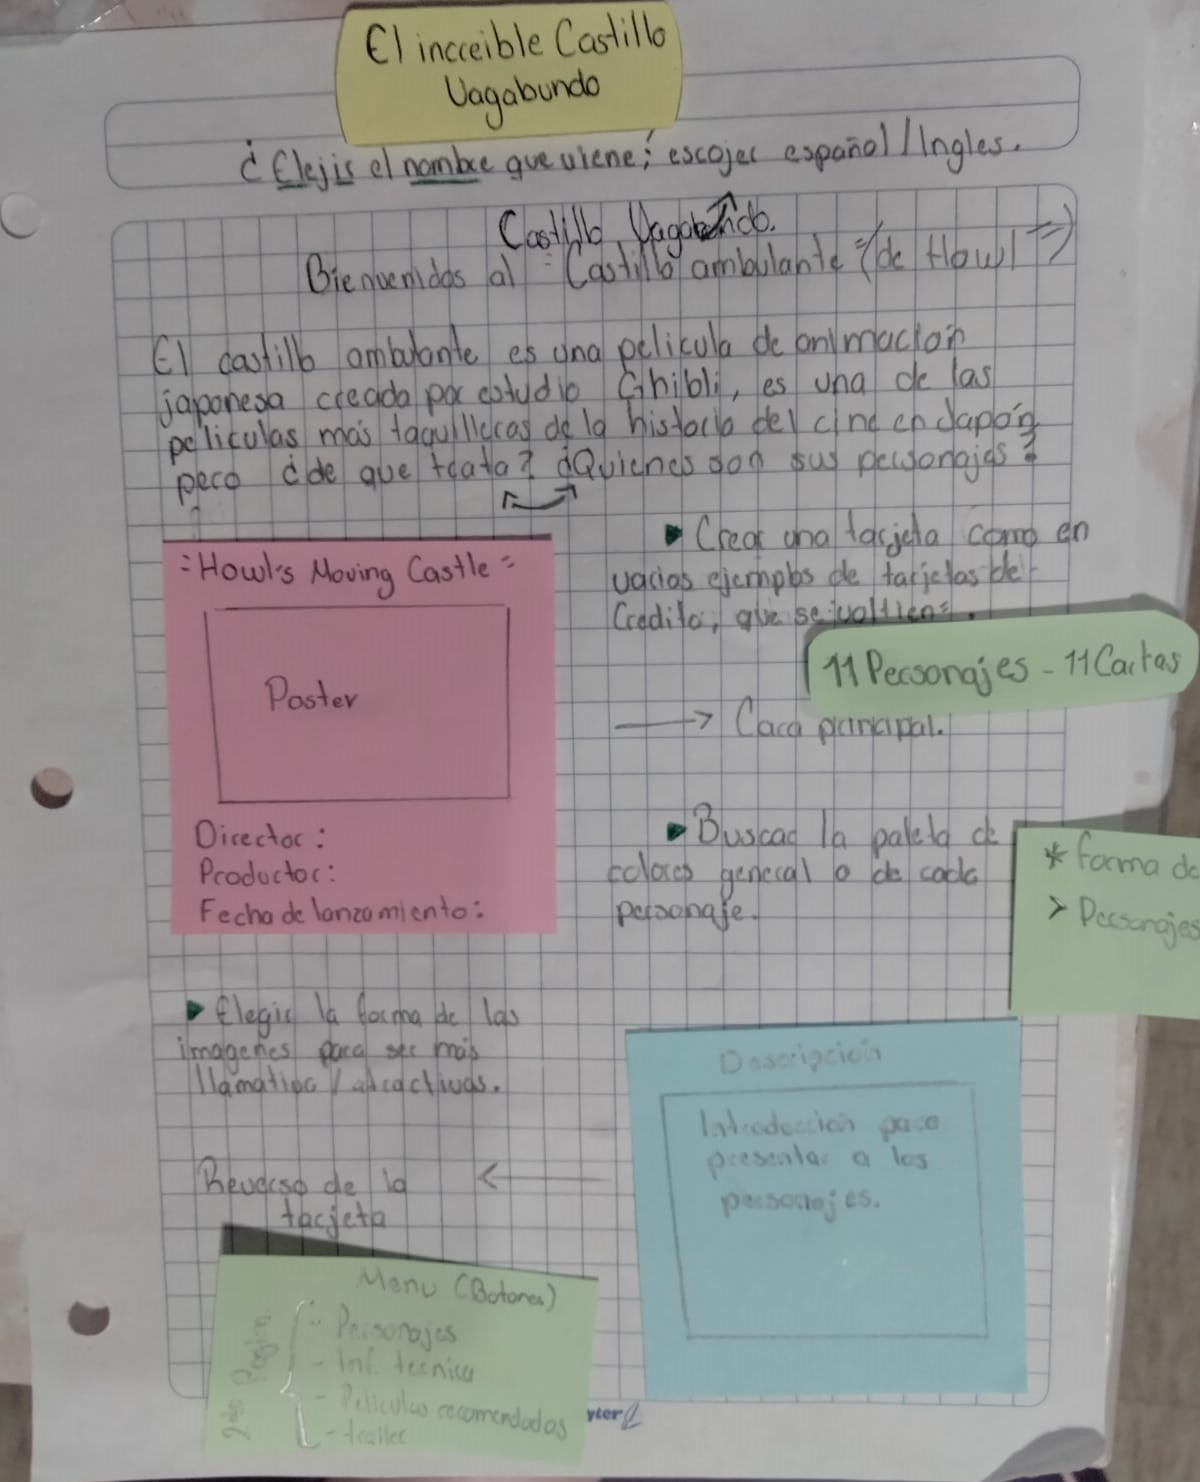 El increible Castillo
Vagabundo
¿Elejir el nombre que viene; escojer español/Ingles.
Castillo Vagabundo.
Bienvenidos al "Castillo ambulante" (de Howl")
El castillo ambulante es una pelicula de animación
japonesa creada por estudio Ghibli, es una de las
peliculas más taquilleras de la historia del cine en Japón,
pero ¿de que trata? ¿Quienes son sus personajes?
=Howl's Moving Castle=
Poster
Director:
Productor:
Fecha de lanzamiento:
Crear una tarjeta como en
varios ejemplos de tarjetas de
Credito; que se voltien.
11 Personajes - 11 Cartas
Cara principal.
Buscar la paleta de
colores general o de cada
personaje.
* forma de
> Personajes
Elegir la forma de las
imagenes para ser más
llamativa / atractivas.
Reverso de la
tarjeta
Descripción
Introducción para
presentar a los
personajes.
Menu (Botones)
2da Pagina
- Personajes
- Inf. tecnica
- Peliculas recomendadas
- trailer